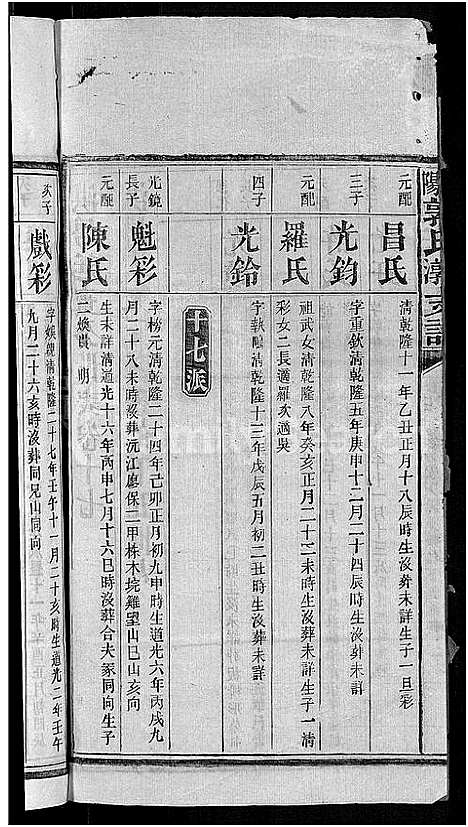 陽郭氏
元配
昌氏
清乾隆十一年乙丑正月十八辰時生沒葬未詳生子一旦彩
三子
光鈞
字重欽清乾隆五年庚申十二月二十四辰時生沒葬未詳
元配
羅氏
祖武女清乾隆八年癸亥正月二十二未時生沒葬未詳生子一清
彩女二長適羅次適吳
四子
光鈴
字 清乾隆十三年戊辰五月初二丑時生沒葬未詳
十七派
光鏡
長子
魁彩
字榜元清乾隆二十四年己卯正月初九申時生道光六年丙戌九
月二十八未時沒葬沅江廖保二甲株木垸雞望山巳山亥向
元配
陳氏
生未詳清道光十六年丙申七月十六巳時沒葬合夫冢同向生子
二煥 明
次子
戲彩
字娛親清乾隆二十七年壬午十一月二十亥時生道光二年壬午
九月二十六亥時沒葬同兄山同向